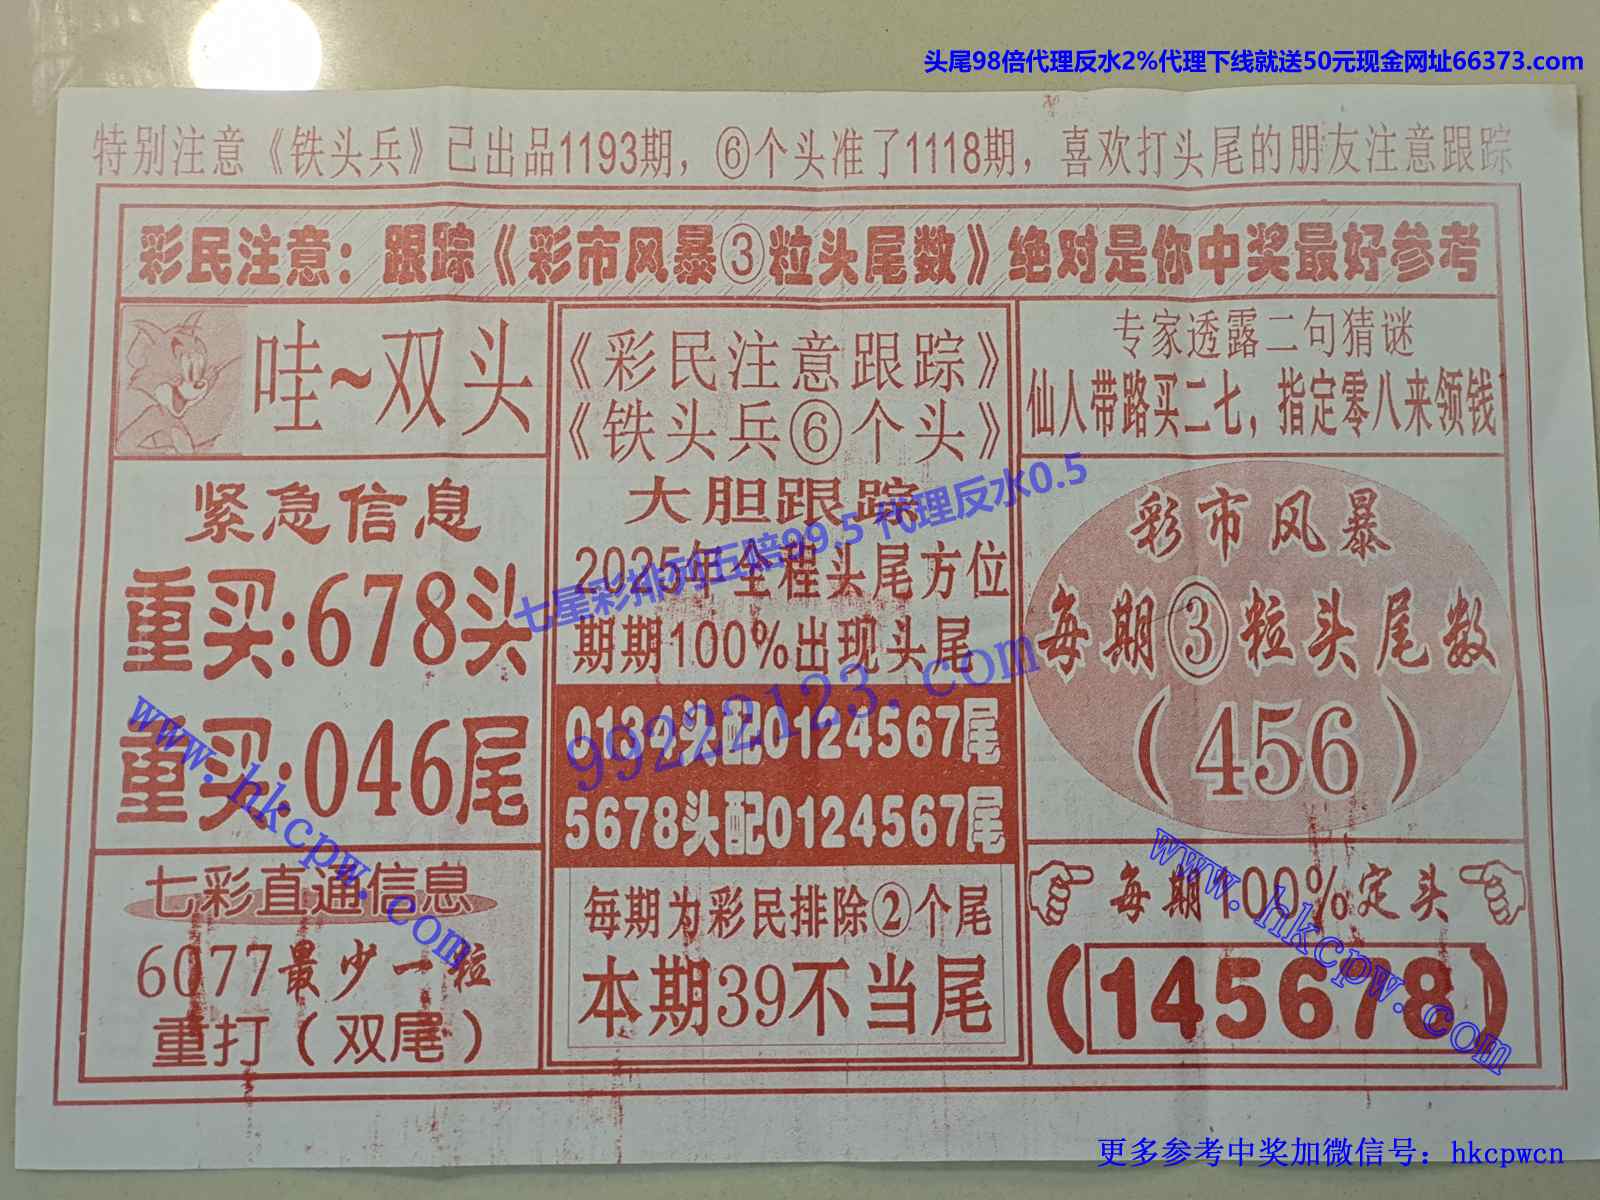 头尾98倍代理反水2%代理下线就送50元现金网址66373.com
特别注意《铁头兵》已出品1193期，⑥个头准了1118期，喜欢打头尾的朋友注意跟踪
彩民注意：跟踪《彩市风暴③粒头尾数》绝对是你中奖最好参考
哇~双头
紧急信息
重买:678头
重买:046尾
七彩直通信息
6077最少一粒
重打（双尾）
《彩民注意跟踪》
《铁头兵⑥个头》
大胆跟踪
2025年全程头尾方位
期期100%出现头尾
0134头配0124567尾
5678头配0124567尾
每期为彩民排除②个尾
本期39不当尾
专家透露二句猜谜
仙人带路买二七，指定零八来领钱
彩市风暴
每期③粒头尾数
（456）
每期100%定头
（145678）
七星彩排列五赔99.5 代理反水0.5
99222123.com
www.hkcpw.com
www.hkcpw.com
更多参考中奖加微信号：hkcpwcn